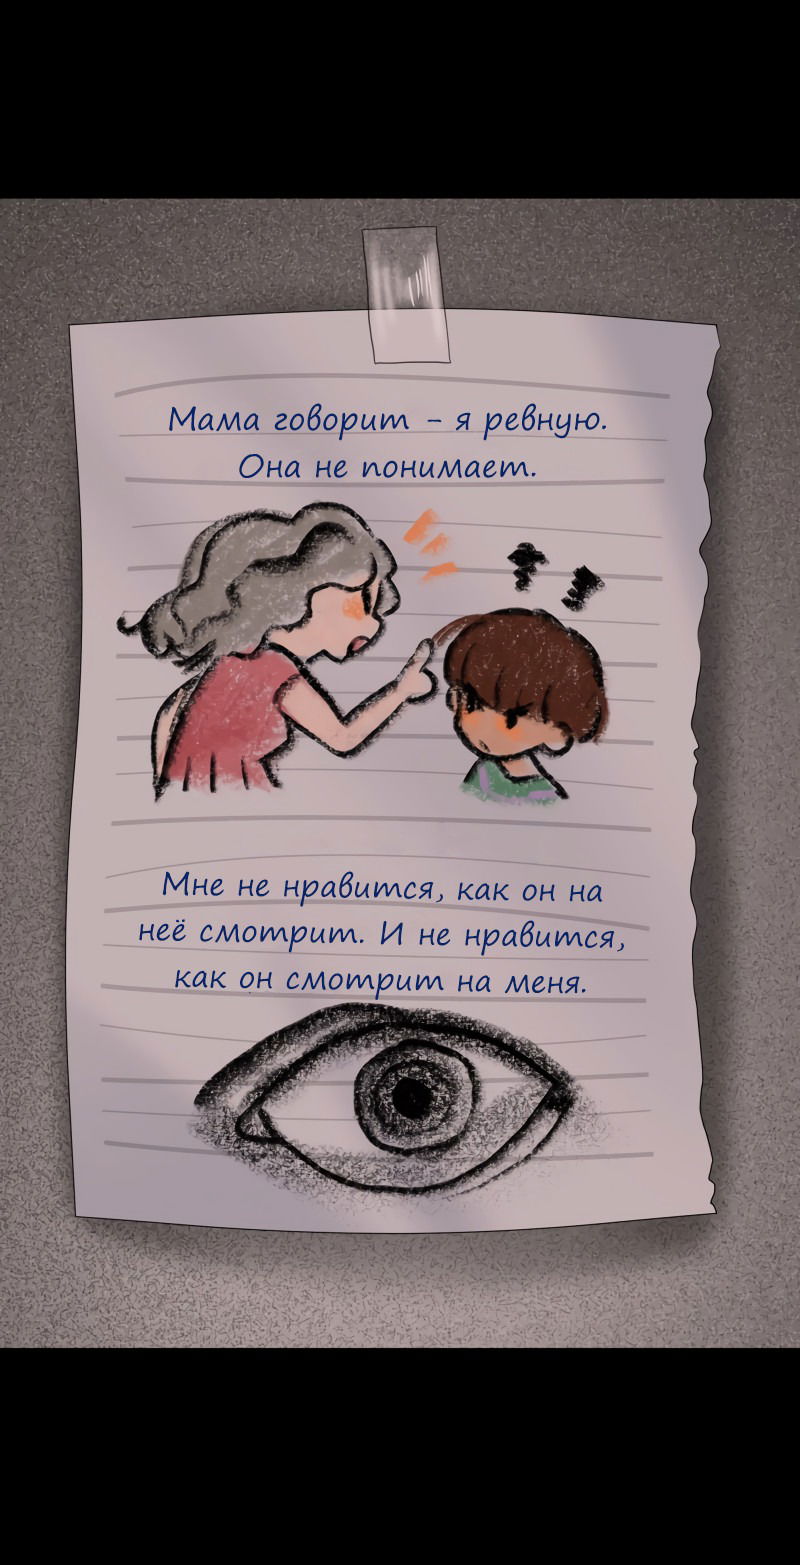 Мама говорит - я ревную.
Она не понимает.
Мне не нравится, как он на
неё смотрит. И не нравится,
как он смотрит на меня.